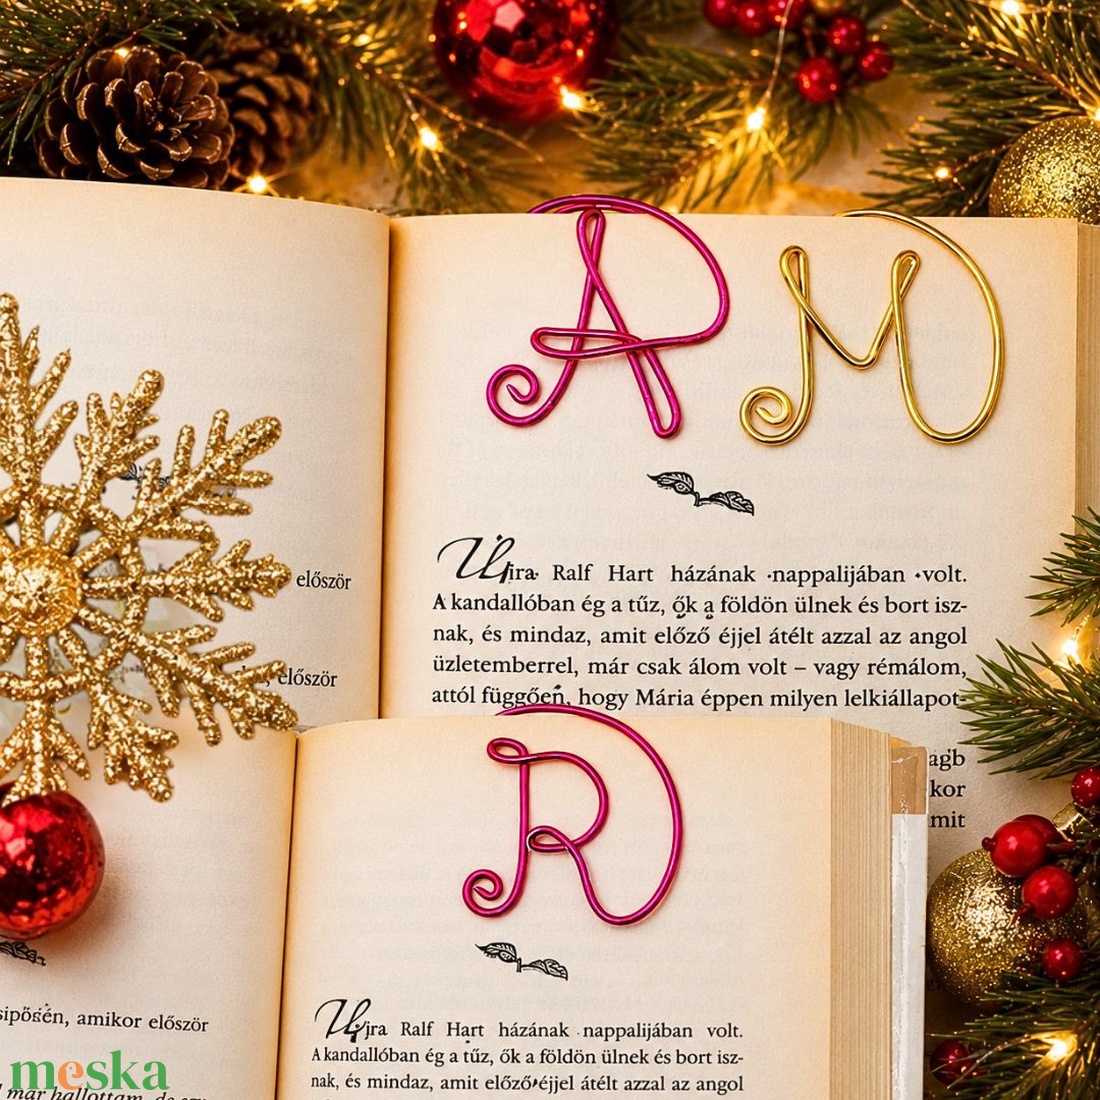 A M
először
, először
Újra Ralf Hart házának nappalijában volt.
A kandallóban ég a tűz, ők a földön ülnek és bort isz-
nak, és mindaz, amit előző éjjel átélt azzal az angol
üzletemberrel, már csak álom volt – vagy rémálom,
attól függően, hogy Mária éppen milyen lelkiállapot-
agb
kor
mit
R
amikor először
Újra Ralf Hart házának nappalijában volt.
A kandallóban ég a tűz, ők a földön ülnek és bort isz-
nak, és mindaz, amit előző éjjel átélt azzal az angol
meska
már hallottam, de egy